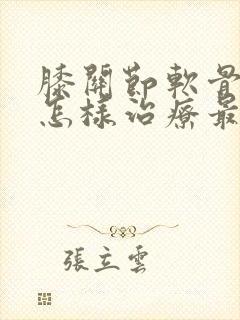 膝關節軟骨
怎樣治療最
張立雲